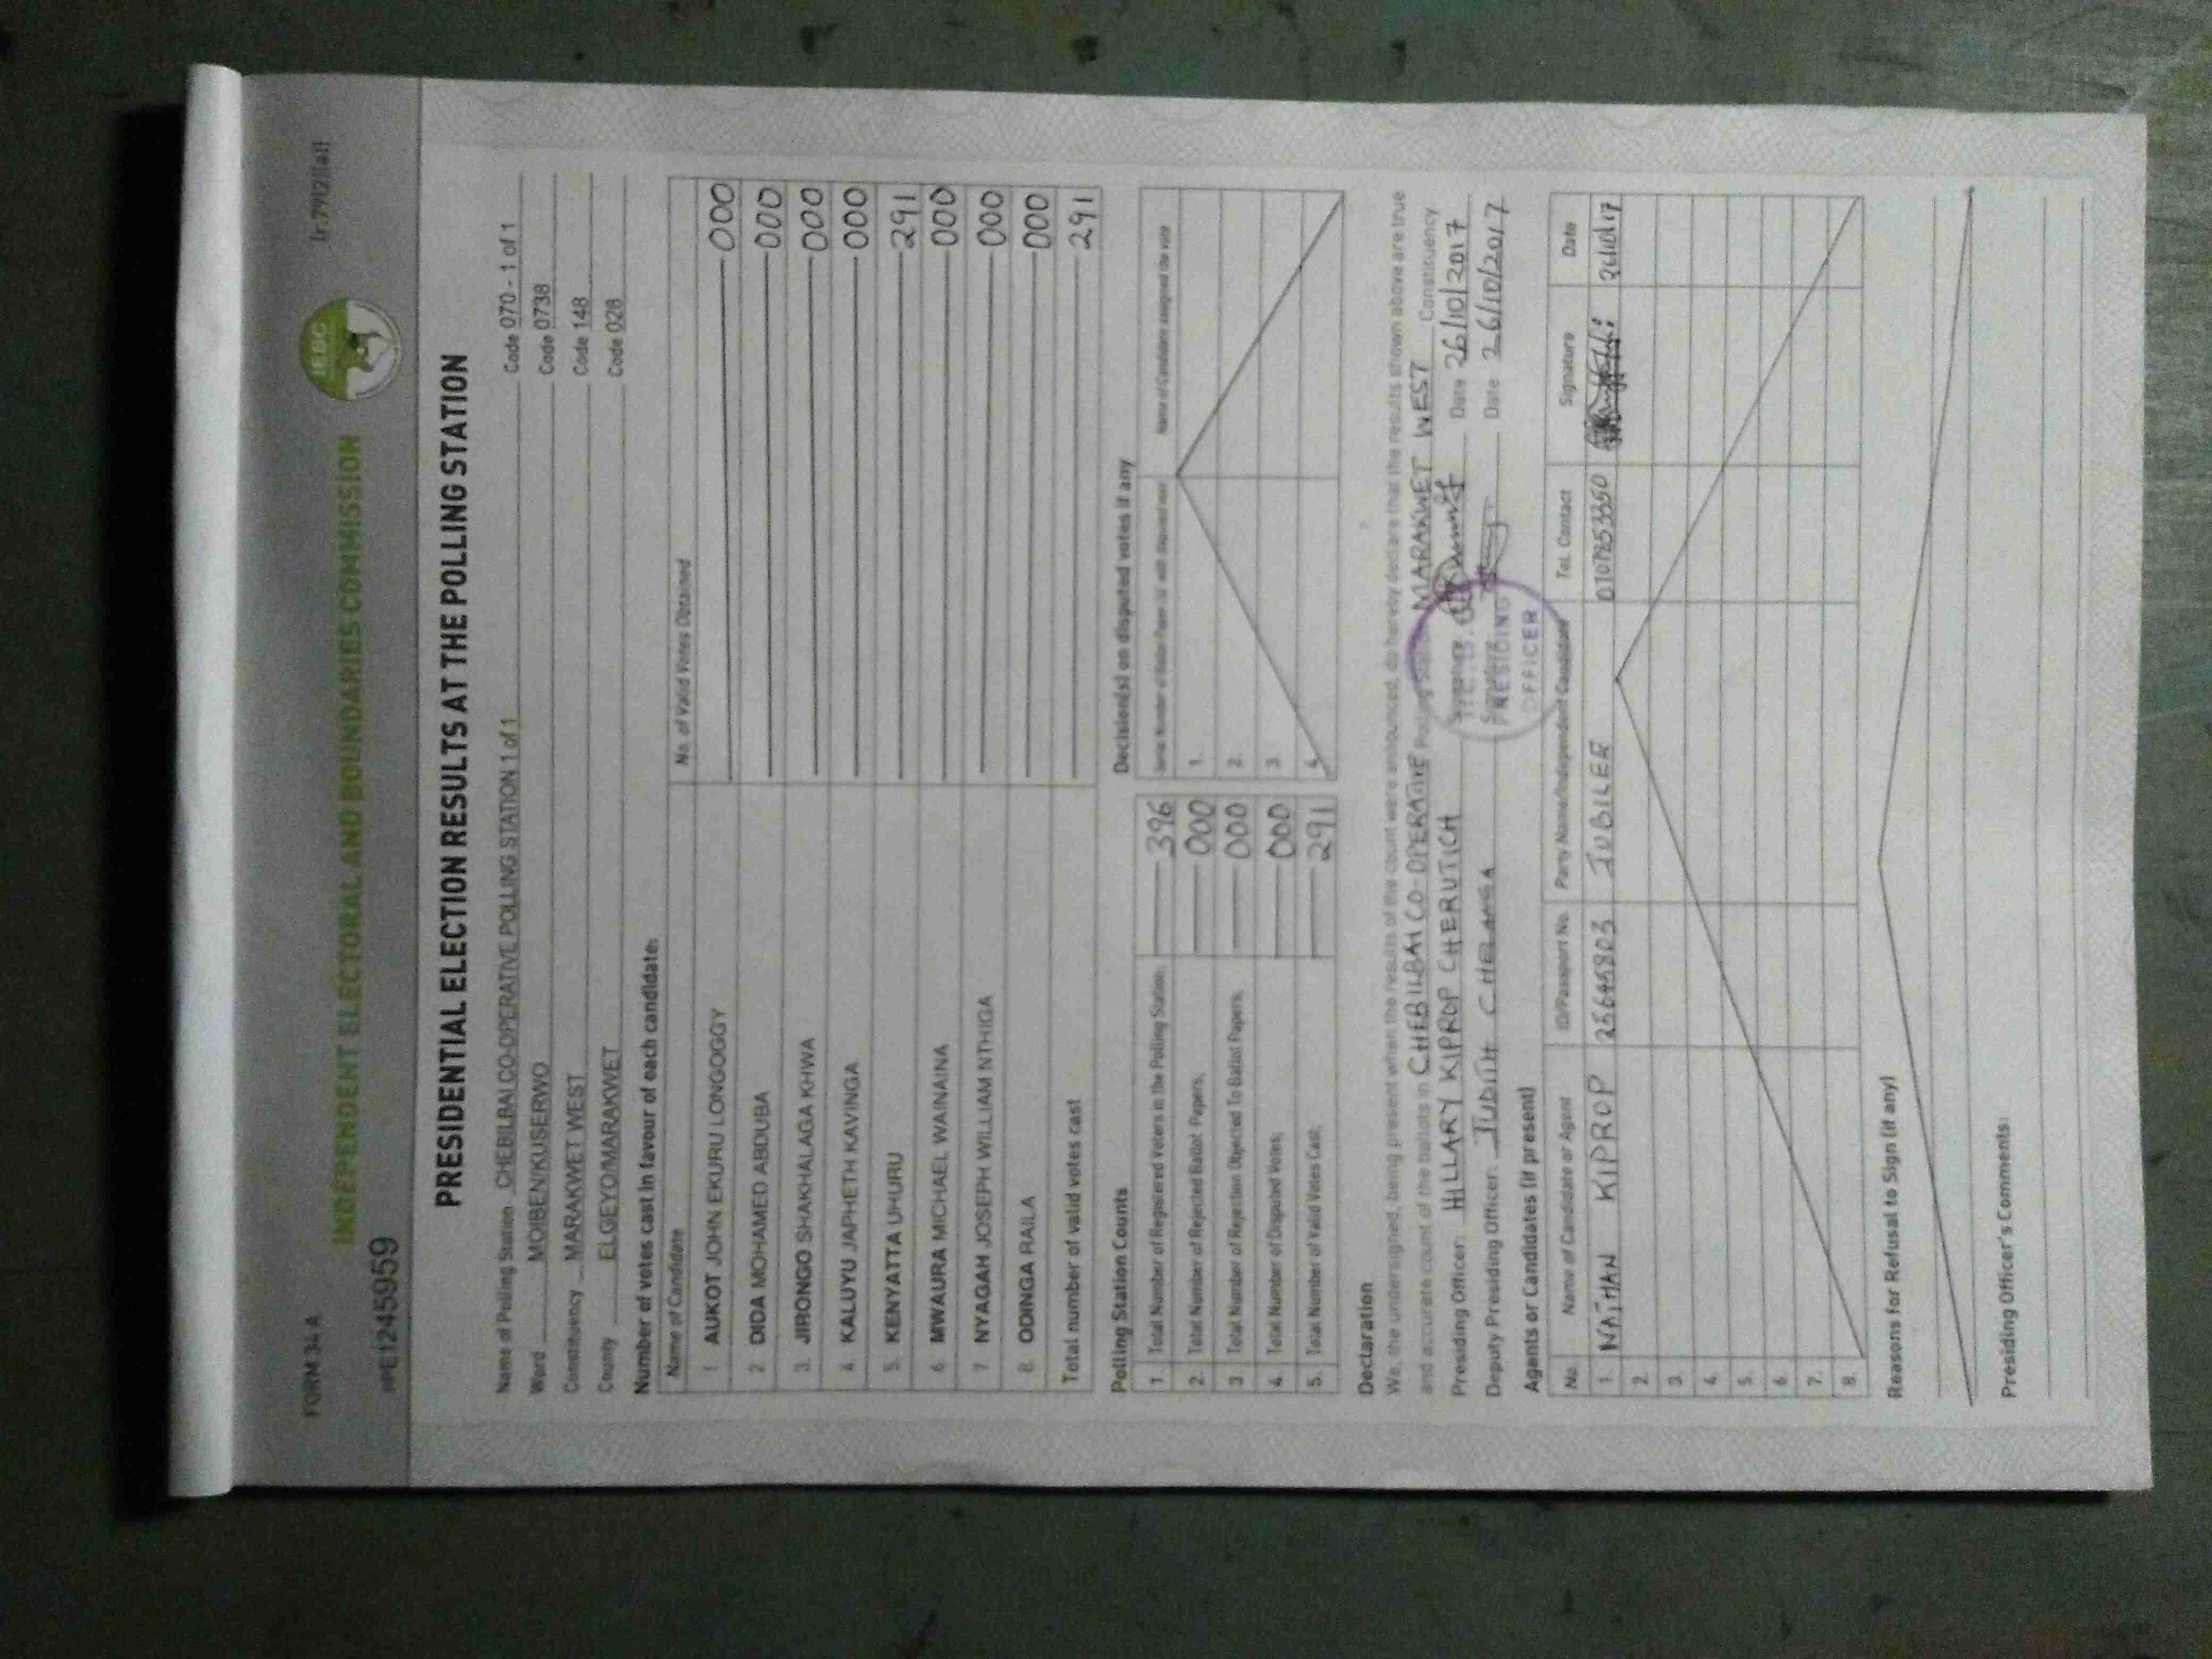 FORM 34 A
(r.79(2)(a))
INDEPENDENT ELECTORAL AND BOUNDARIES COMMISSION
IEBC
PRESIDENTIAL ELECTION RESULTS AT THE POLLING STATION
Name of Polling Station CHEBILBAI CO-OPERATIVE POLLING STATION 1 of 1 Code 070 - 1 of 1
Ward MOIBEN/KUSERWO Code 0738
Constituency MARAKWET WEST Code 148
County ELGEYO/MARAKWET Code 028
Number of votes cast in favour of each candidate:
Name of Candidate No. of Valid Votes Obtained
1 AUKOT JOHN EKURU LONGOGGY 000
2 DIDA MOHAMED ABDUBA 000
3. JIRONGO SHAKHALAGA KHWA 000
4. KALUYU JAPHETH KAVINGA 000
5. KENYATTA UHURU 291
6 MWAURA MICHAEL WAINAINA 000
7 NYAGAH JOSEPH WILLIAM NTHIGA 000
8. ODINGA RAILA 000
Total number of valid votes cast 291
Polling Station Counts
1. Total Number of Registered Voters in the Polling Station 396
2. Total Number of Rejected Ballot Papers; 000
3 Total Number of Rejection Objected To Ballot Papers; 000
4. Total Number of Disputed Votes; 000
5. Total Number of Valid Votes Cast; 291
Decision(s) on disputed votes if any
Name of Candidate assigned the vote
1.
2.
3.
4.
Declaration
We, the undersigned, being present when the results of the count were announced, do hereby declare that the results shown above are true
and accurate count of the ballots in CHEBILBAI CO-OPERATIVE Polling MARAKWET WEST Constituency.
Presiding Officer: HILLARY KIPROP CHERUTICH Date 26/10/2017
Deputy Presiding Officer: JUDITH Date 26/10/2017
PRESIDING
OFFICER
Agents or Candidates (if present)
No. Name of Candidate or Agent ID/Passport No. Party Name/Independent Candidate Tel. Contact Signature Date
1. NATHAN KIPROP JUBILEE
2.
3.
4.
5.
6
7.
8.
Reasons for Refusal to Sign (if any)
Presiding Officer's Comments: